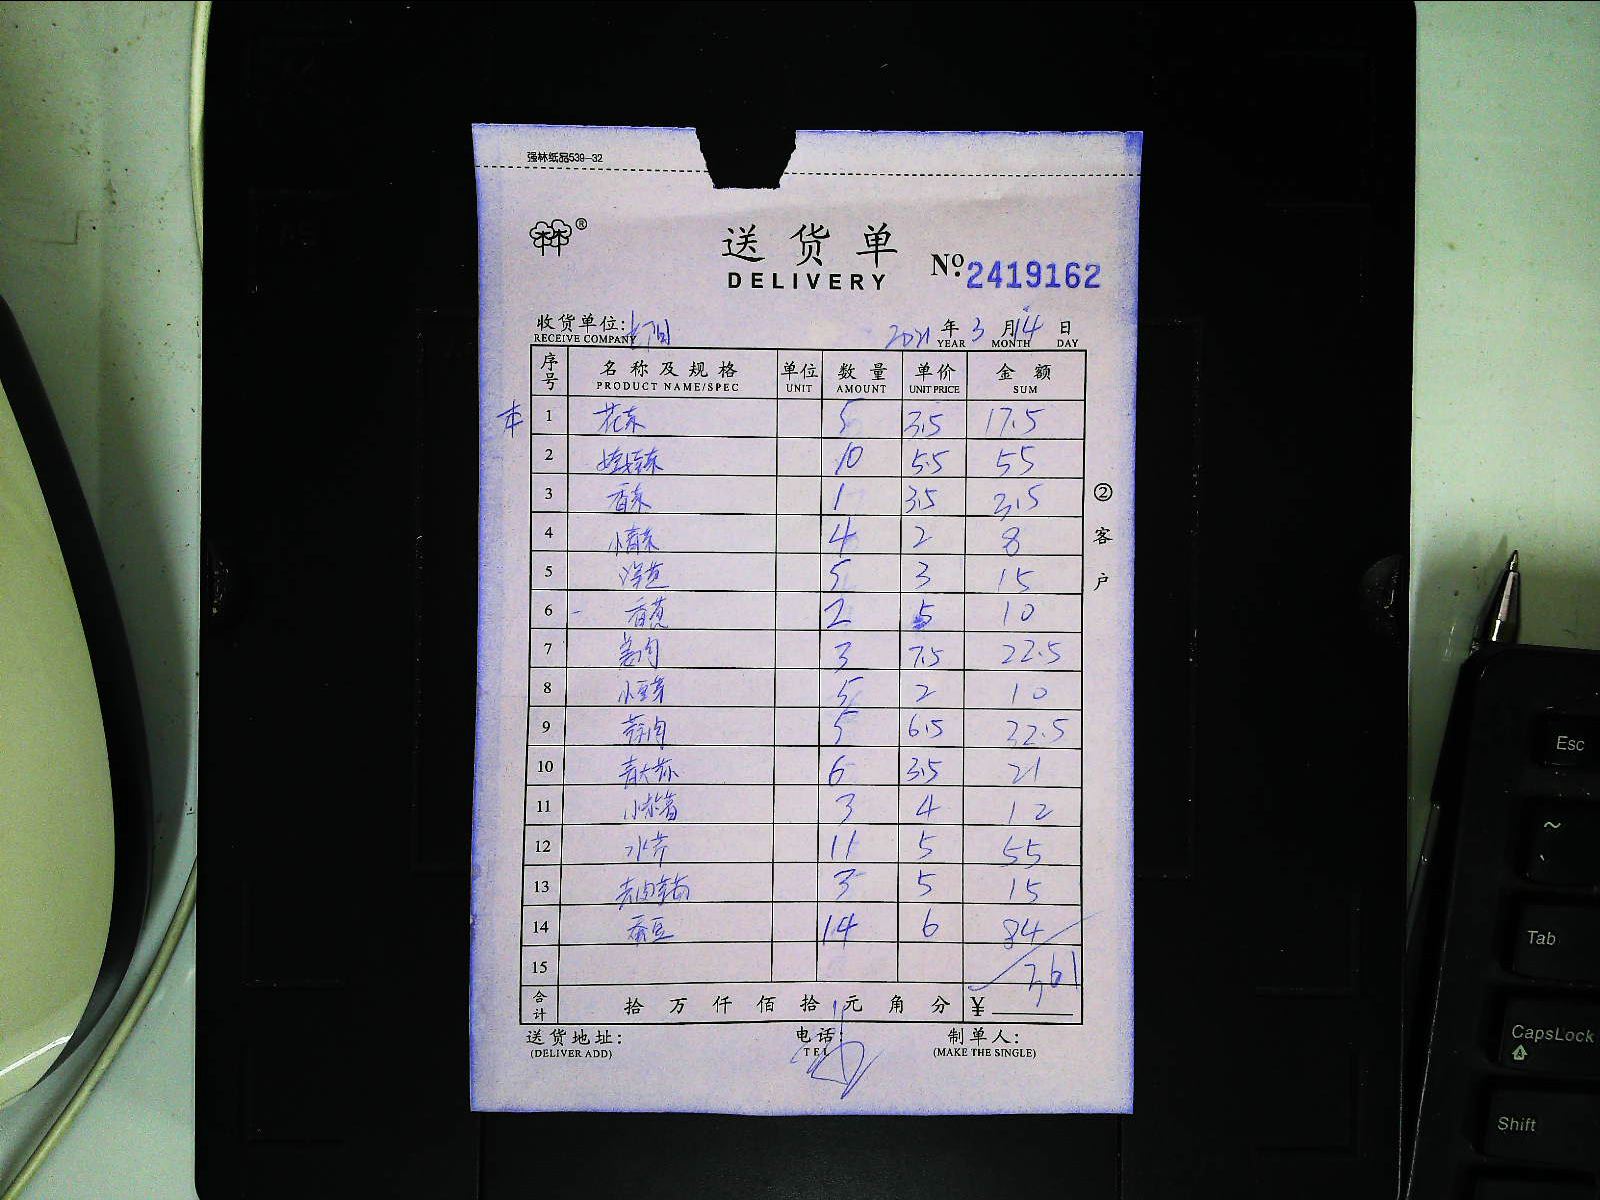 强林纸品539-32
送货单
DELIVERY
No. 2419162
收货单位:
RECEIVE COMPANY
2021 年 3 月 14 日
YEAR MONTH DAY
序号 名称及规格 单位 数量 单价 金额
PRODUCT NAME/SPEC UNIT AMOUNT UNIT PRICE SUM
1 花菜 5 3.5 17.5
2 娃娃菜 10 5.5 55
3 香菜 1 3.5 3.5
4 小青菜 4 2 8
5 洋葱 5 3 15
6 香葱 2 5 10
7 姜肉 3 7.5 22.5
8 小豆芽 5 2 10
9 蒜肉 5 6.5 32.5
10 青大 6 3.5 21
11 3 4 12
12 水芹 11 5 55
13 3 5 15
14 蚕豆 14 6 84
15 361
合计 拾 万 仟 佰 拾 元 角 分 ¥
送货地址: 电话: 制单人:
(DELIVER ADD) TEL (MAKE THE SINGLE)
② 客户
Esc
~
Tab
CapsLock
Shift